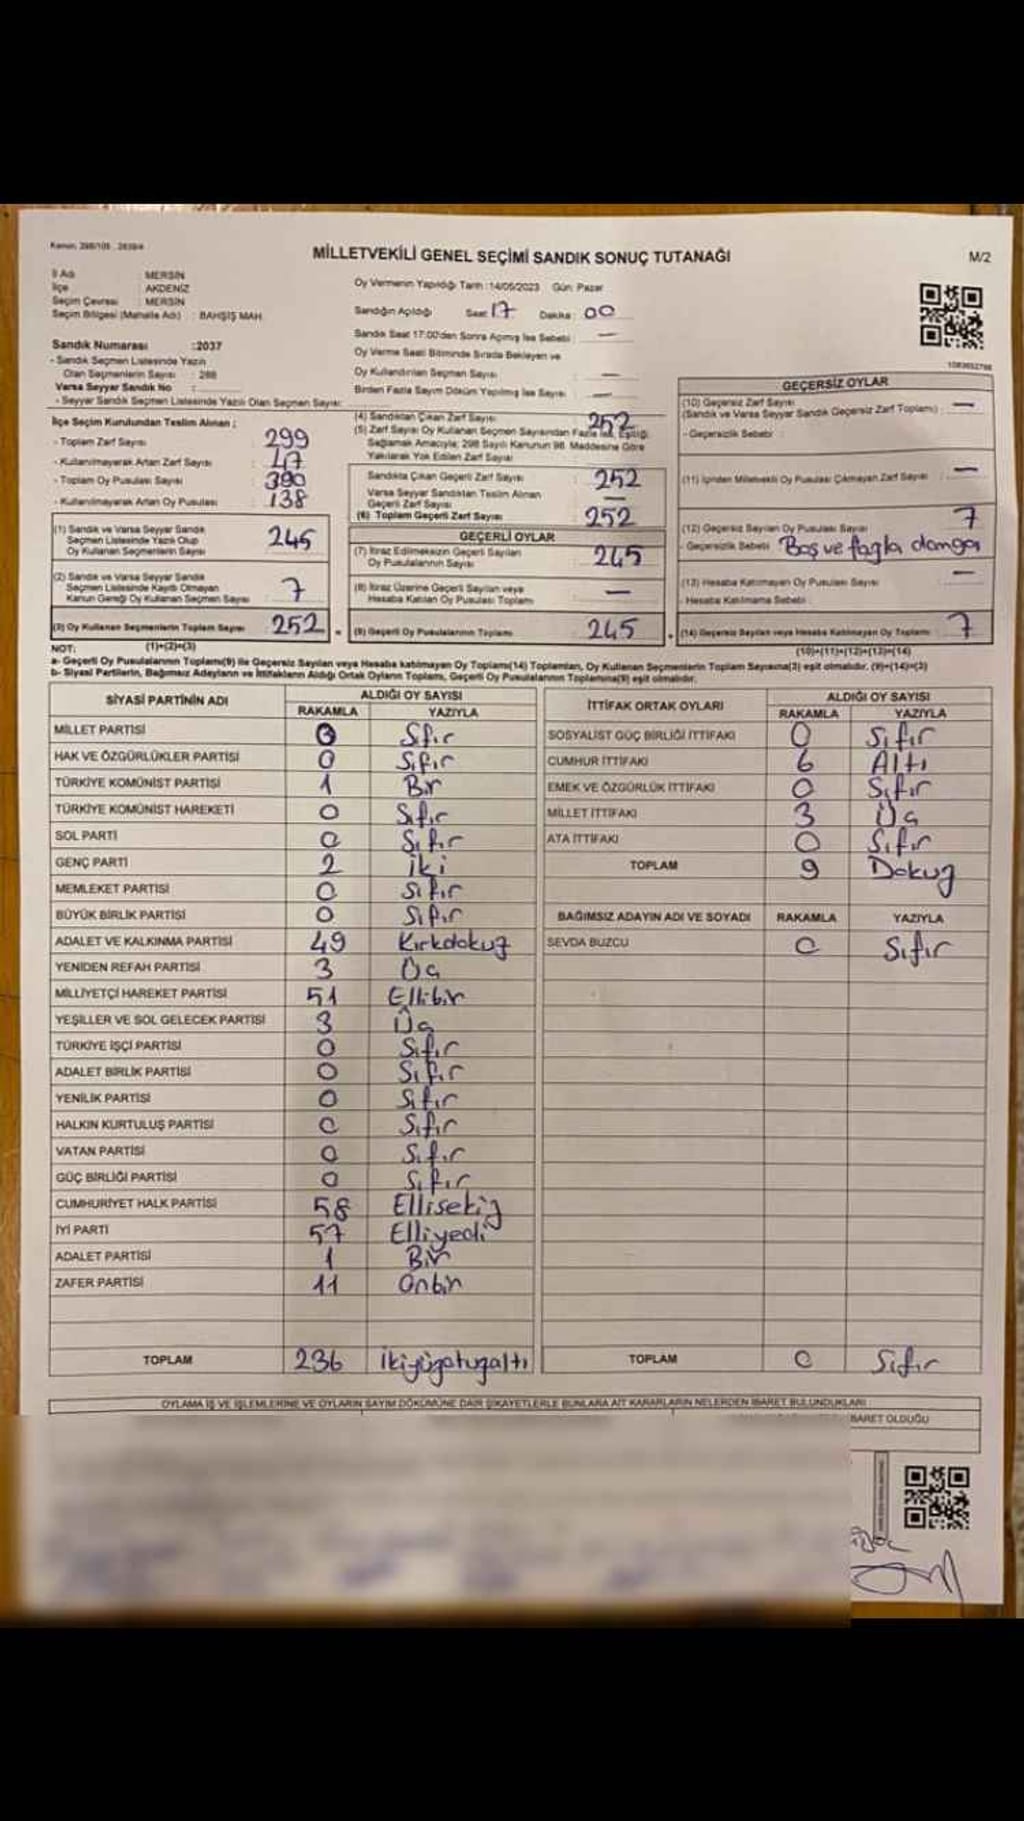 Kanun: 298/105 , 2839/4
MİLLETVEKİLİ GENEL SEÇİMİ SANDIK SONUÇ TUTANAĞI
M/2
İl Adı : MERSİN
İlçe : AKDENİZ
Seçim Çevresi : MERSİN
Seçim Bölgesi (Mahalle Adı) : BAHŞİŞ MAH.
Sandık Numarası :2037
- Sandık Seçmen Listesinde Yazılı
Olan Seçmenlerin Sayısı : 288
Varsa Seyyar Sandık No :
- Seyyar Sandık Seçmen Listesinde Yazılı Olan Seçmen Sayısı:
Oy Vermenin Yapıldığı Tarih :14/05/2023 Gün: Pazar
Sandığın Açıldığı Saat : 17 Dakika : 00
Sandık Saat 17:00'den Sonra Açılmış İse Sebebi : —
Oy Verme Saati Bitiminde Sırada Bekleyen ve
Oy Kullandırılan Seçmen Sayısı : —
Birden Fazla Sayım Döküm Yapılmış İse Sayısı : —
İlçe Seçim Kurulundan Teslim Alınan ;
- Toplam Zarf Sayısı : 299
- Kullanılmayarak Artan Zarf Sayısı : 47
- Toplam Oy Pusulası Sayısı : 390
- Kullanılmayarak Artan Oy Pusulası : 138
(1) Sandık ve Varsa Seyyar Sandık
Seçmen Listesinde Yazılı Olup
Oy Kullanan Seçmenlerin Sayısı : 245
(2) Sandık ve Varsa Seyyar Sandık
Seçmen Listesinde Kayıtlı Olmayan
Kanun Gereği Oy Kullanan Seçmen Sayısı : 7
(3) Oy Kullanan Seçmenlerin Toplam Sayısı : 252 =
(4) Sandıktan Çıkan Zarf Sayısı : 252
(5) Zarf Sayısı Oy Kullanan Seçmen Sayısından Fazla İse, Eşitliği
Sağlamak Amacıyla; 298 Sayılı Kanunun 98. Maddesine Göre
Yakılarak Yok Edilen Zarf Sayısı
Sandıkta Çıkan Geçerli Zarf Sayısı : 252
Varsa Seyyar Sandıktan Teslim Alınan
Geçerli Zarf Sayısı : —
(6) Toplam Geçerli Zarf Sayısı : 252
GEÇERLİ OYLAR
(7) İtiraz Edilmeksizin Geçerli Sayılan
Oy Pusulalarının Sayısı : 245
(8) İtiraz Üzerine Geçerli Sayılan veya
Hesaba Katılan Oy Pusulası Toplamı : —
(9) Geçerli Oy Pusulalarının Toplamı : 245 +
1083652798
GEÇERSİZ OYLAR
(10) Geçersiz Zarf Sayısı
(Sandık ve Varsa Seyyar Sandık Geçersiz Zarf Toplamı) : —
- Geçersizlik Sebebi :
(11) İçinden Milletvekili Oy Pusulası Çıkmayan Zarf Sayısı : —
(12) Geçersiz Sayılan Oy Pusulası Sayısı : 7
- Geçersizlik Sebebi : Boş ve fazla damga
(13) Hesaba Katılmayan Oy Pusulası Sayısı : —
- Hesaba Katılmama Sebebi :
(14) Geçersiz Sayılan veya Hesaba Katılmayan Oy Toplamı : 7
NOT: (1)+(2)=(3)
(10)+(11)+(12)+(13)=(14)
a- Geçerli Oy Pusulalarının Toplamı(9) ile Geçersiz Sayılan veya Hesaba katılmayan Oy Toplamı(14) Toplamları, Oy Kullanan Seçmenlerin Toplam Sayısına(3) eşit olmalıdır. (9)+(14)=(3)
b- Siyasi Partilerin, Bağımsız Adayların ve İttifakların Aldığı Ortak Oyların Toplamı, Geçerli Oy Pusulalarının Toplamına(9) eşit olmalıdır.
SİYASİ PARTİNİN ADI ALDIĞI OY SAYISI
RAKAMLA YAZIYLA
MİLLET PARTİSİ 0 Sfır
HAK VE ÖZGÜRLÜKLER PARTİSİ 0 Sıfır
TÜRKİYE KOMÜNİST PARTİSİ 1 Bir
TÜRKİYE KOMÜNİST HAREKETİ 0 Sıfır
SOL PARTİ 0 Sıfır
GENÇ PARTİ 2 iki
MEMLEKET PARTİSİ 0 Sıfır
BÜYÜK BİRLİK PARTİSİ 0 Sıfır
ADALET VE KALKINMA PARTİSİ 49 Kırkdokuz
YENİDEN REFAH PARTİSİ 3 Üç
MİLLİYETÇİ HAREKET PARTİSİ 51 Ellibir
YEŞİLLER VE SOL GELECEK PARTİSİ 3 Üç
TÜRKİYE İŞÇİ PARTİSİ 0 Sıfır
ADALET BİRLİK PARTİSİ 0 Sıfır
YENİLİK PARTİSİ 0 Sıfır
HALKIN KURTULUŞ PARTİSİ 0 Sıfır
VATAN PARTİSİ 0 Sıfır
GÜÇ BİRLİĞİ PARTİSİ 0 Sıfır
CUMHURİYET HALK PARTİSİ 58 Ellisekiz
İYİ PARTİ 57 Elliyedi
ADALET PARTİSİ 1 Bir
ZAFER PARTİSİ 11 Onbir
TOPLAM 236 ikiyüzotuzaltı
İTTİFAK ORTAK OYLARI ALDIĞI OY SAYISI
RAKAMLA YAZIYLA
SOSYALİST GÜÇ BİRLİĞİ İTTİFAKI 0 Sıfır
CUMHUR İTTİFAKI 6 Altı
EMEK VE ÖZGÜRLÜK İTTİFAKI 0 Sıfır
MİLLET İTTİFAKI 3 Üç
ATA İTTİFAKI 0 Sıfır
TOPLAM 9 Dokuz
BAĞIMSIZ ADAYIN ADI VE SOYADI RAKAMLA YAZIYLA
SEVDA BUZCU 0 Sıfır
TOPLAM 0 Sıfır
OYLAMA İŞ VE İŞLEMLERİNE VE OYLARIN SAYIM DÖKÜMÜNE DAİR ŞİKAYETLERLE BUNLARA AİT KARARLARIN NELERDEN İBARET BULUNDUKLARI
İBARET OLDUĞU